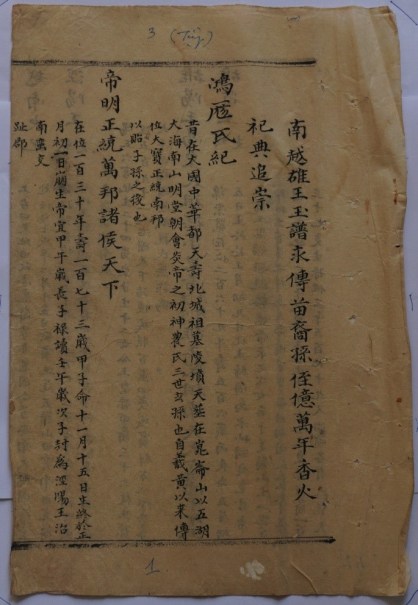 3
南越雄王玉譜永傳苗裔孫侄億萬年香火
祀典追崇
鴻厖氏紀
昔在大國中華都天壽北城祖墓陵墳天葬在崑崙山以五湖
大海南山明堂朝會炎帝之初神農氏三世玄孫也自羲黃以來傳
位大寶正統南邦
以貽子孫之後也
帝明正統萬邦諸侯天下
在位一百三十年壽一百七十三歲甲子命十一月十五日生終於正
月初一日崩生帝宜甲午歲長子祿讀壬午歲次子封為涇陽王治
南蛮交
趾郡
1